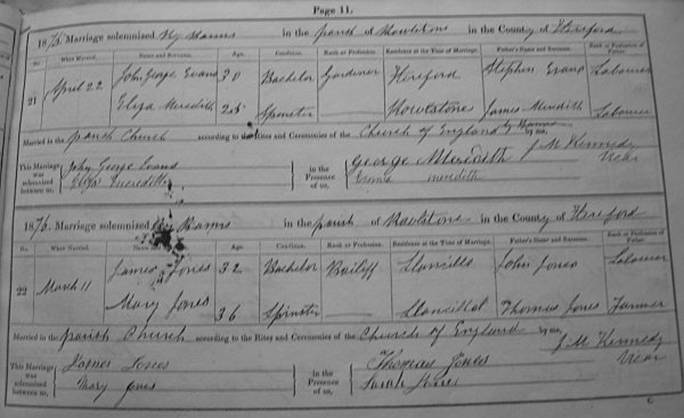 Page 11.
1875. Marriage solemnized By Banns in the parish of Rowlstone in the County of Hereford
No. When Married. Name and Surname. Age. Condition. Rank or Profession. Residence at the Time of Marriage. Father's Name and Surname. Rank or Profession of Father.
21 April 22 John George Evans 30 Bachelor Gardener Hereford Stephen Evans Labourer
Eliza Meredith 25 Spinster Rowlstone James Meredith Labourer
Married in the parish Church according to the Rites and Ceremonies of the Church of England by Banns by me,
J. M. Kennedy
Vicar
This Marriage was solemnized between us, John George Evans
Eliza Meredith
in the Presence of us, George Meredith
Emma Meredith
1876. Marriage solemnized By Banns in the parish of Rowlstone in the County of Hereford
No. When Married. Name Age. Condition. Rank or Profession. Residence at the Time of Marriage. Father's Name and Surname. Rank or Profession of Father.
22 March 11 James Jones 32 Bachelor Bailiff Llancillo John Jones Labourer
Mary Jones 36 Spinster Llancillo Thomas Jones Farmer
Married in the parish Church according to the Rites and Ceremonies of the Church of England by me,
J. M. Kennedy
Vicar
This Marriage was solemnized between us, James Jones
Mary Jones
in the Presence of us, Thomas Jones
Sarah Jones